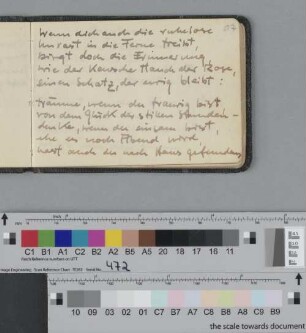 07
Wenn dich auch die ruhelose
Unrast in die Ferne treibt,
bringt doch die Erinnerung,
wie der Hauch der Rose,
einen Schatz, der ewig bleibt:
träume, wenn du traurig bist
von dem Glück der stillen Stunden
denke, wenn du einsam bist,
ehe es noch Abend wird
hast auch du nach Haus gefunden.
C1 B1 A1 C2 B2 A2 B5 A5 20 18 17 16 11
472
10 09 03 02 01 C7 B7 A7 C8 B8 A8 C9 B9
the scale towards document